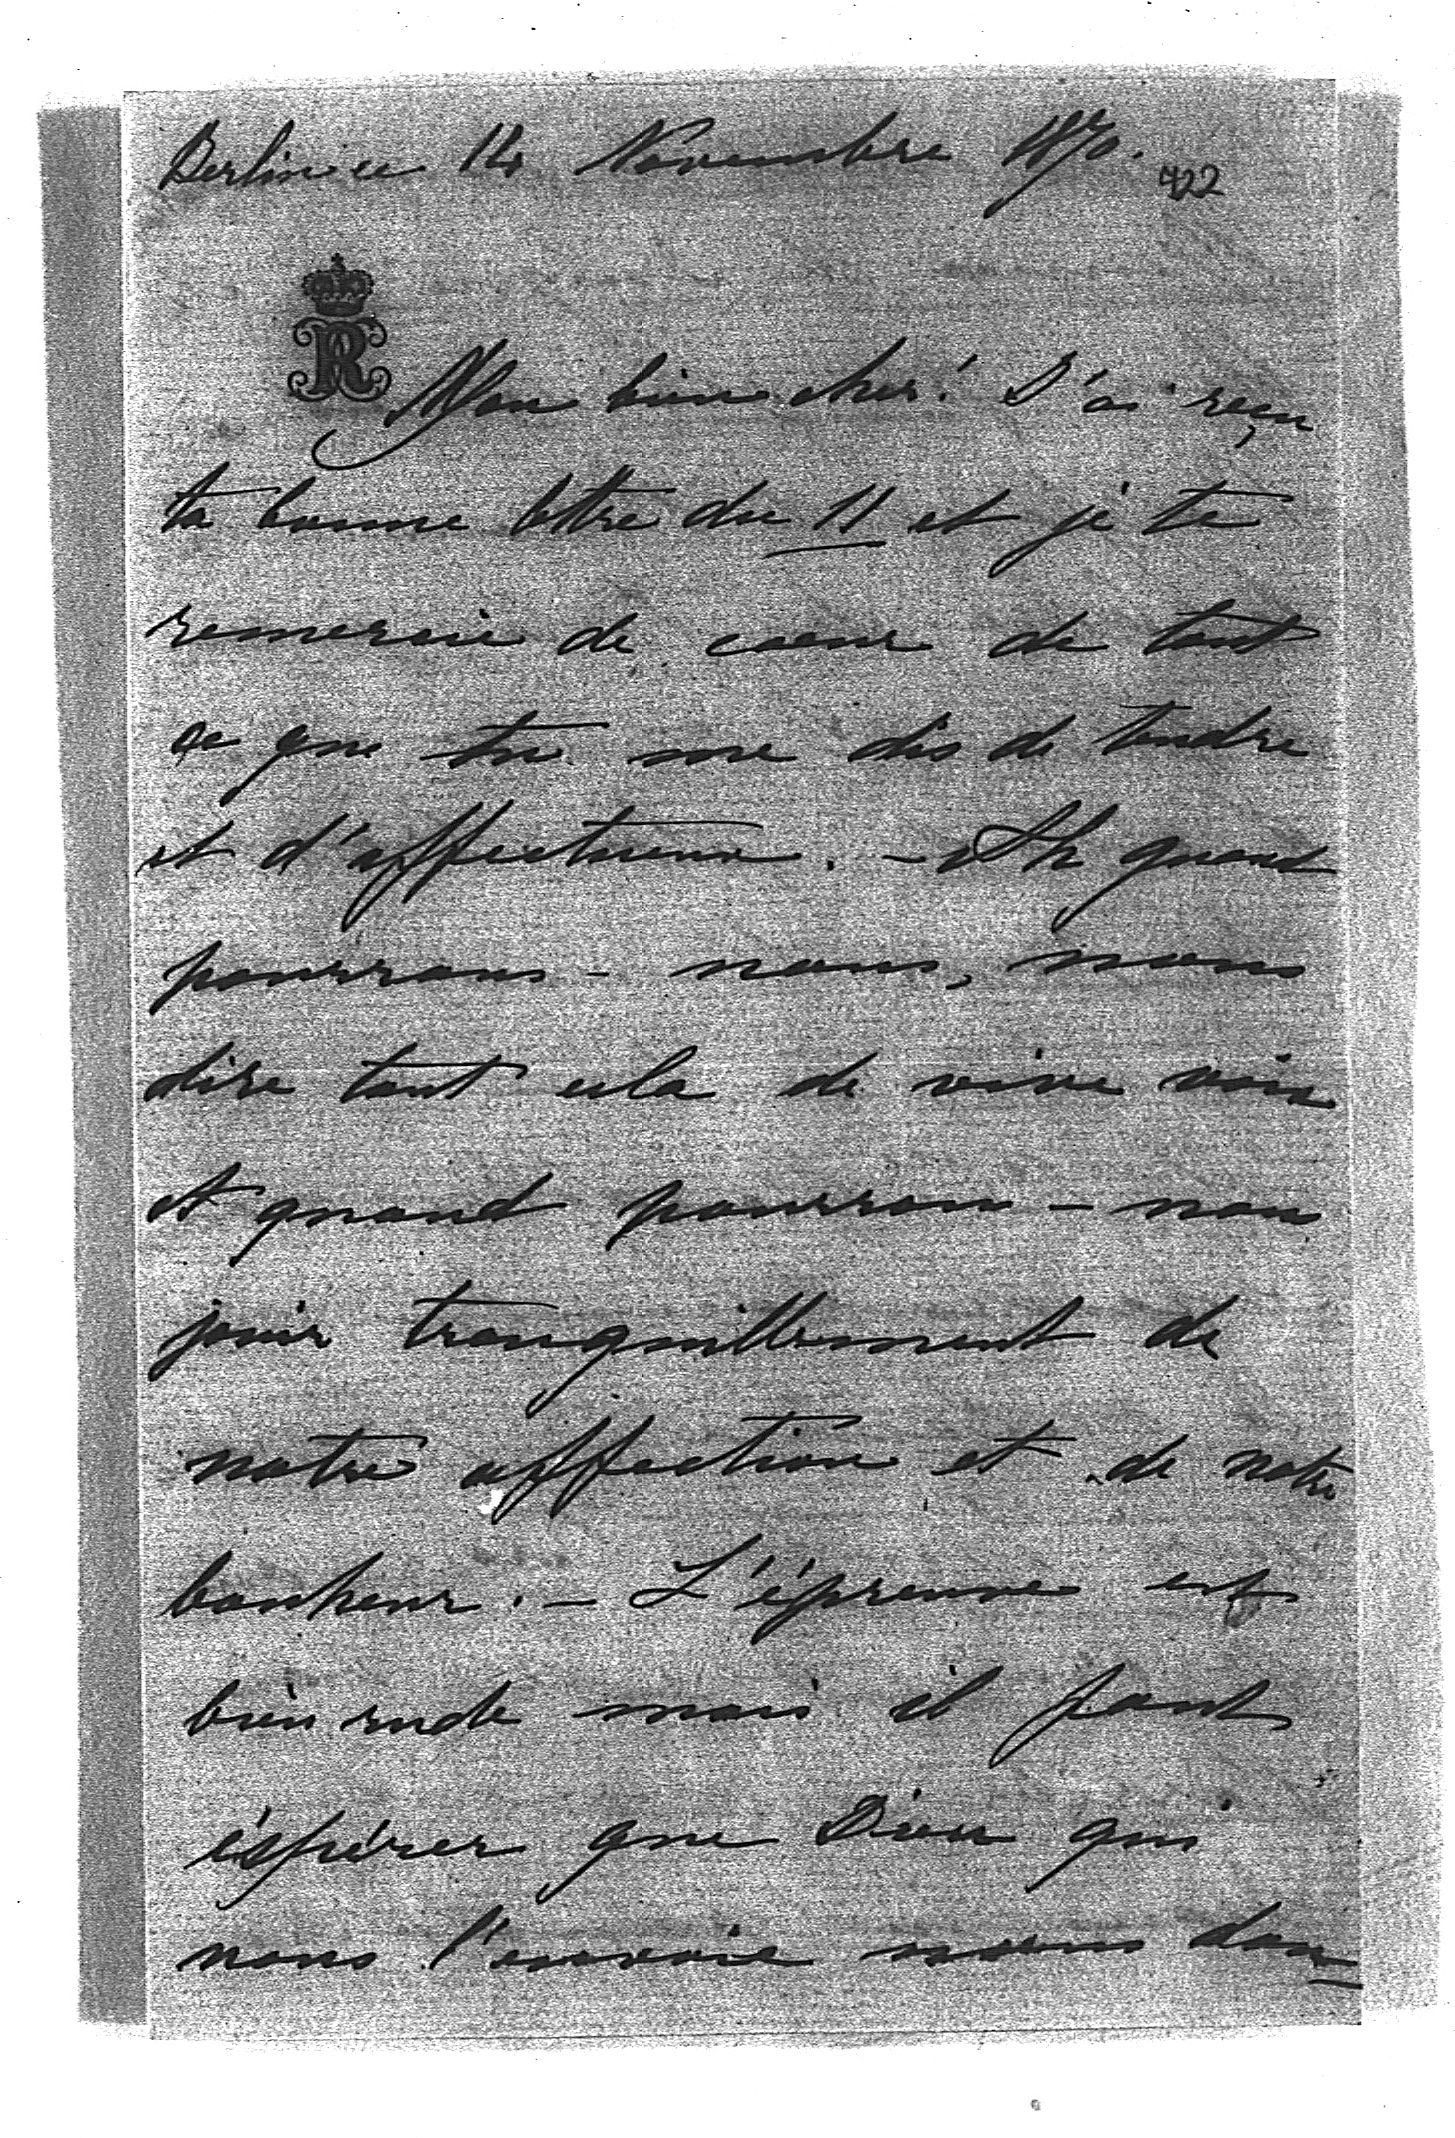 Berlin ce 14 Novembre 1870.
722
R
Mon bien cher! J'ai reçu
ta bonne lettre du 11 et je te
remercie de coeur de tout
ce que tu me dis de tendre
et d'affectueux. - Ah quand
pourrons - nous, nous
dire tout cela de vive voix
et quand pourrons - nous
jouir tranquillement de
notre affection et de notre
bonheur. - L'épreuve est
bien rude mais il faut
éspérer que Dieu qui
nous l'envoie nous don-